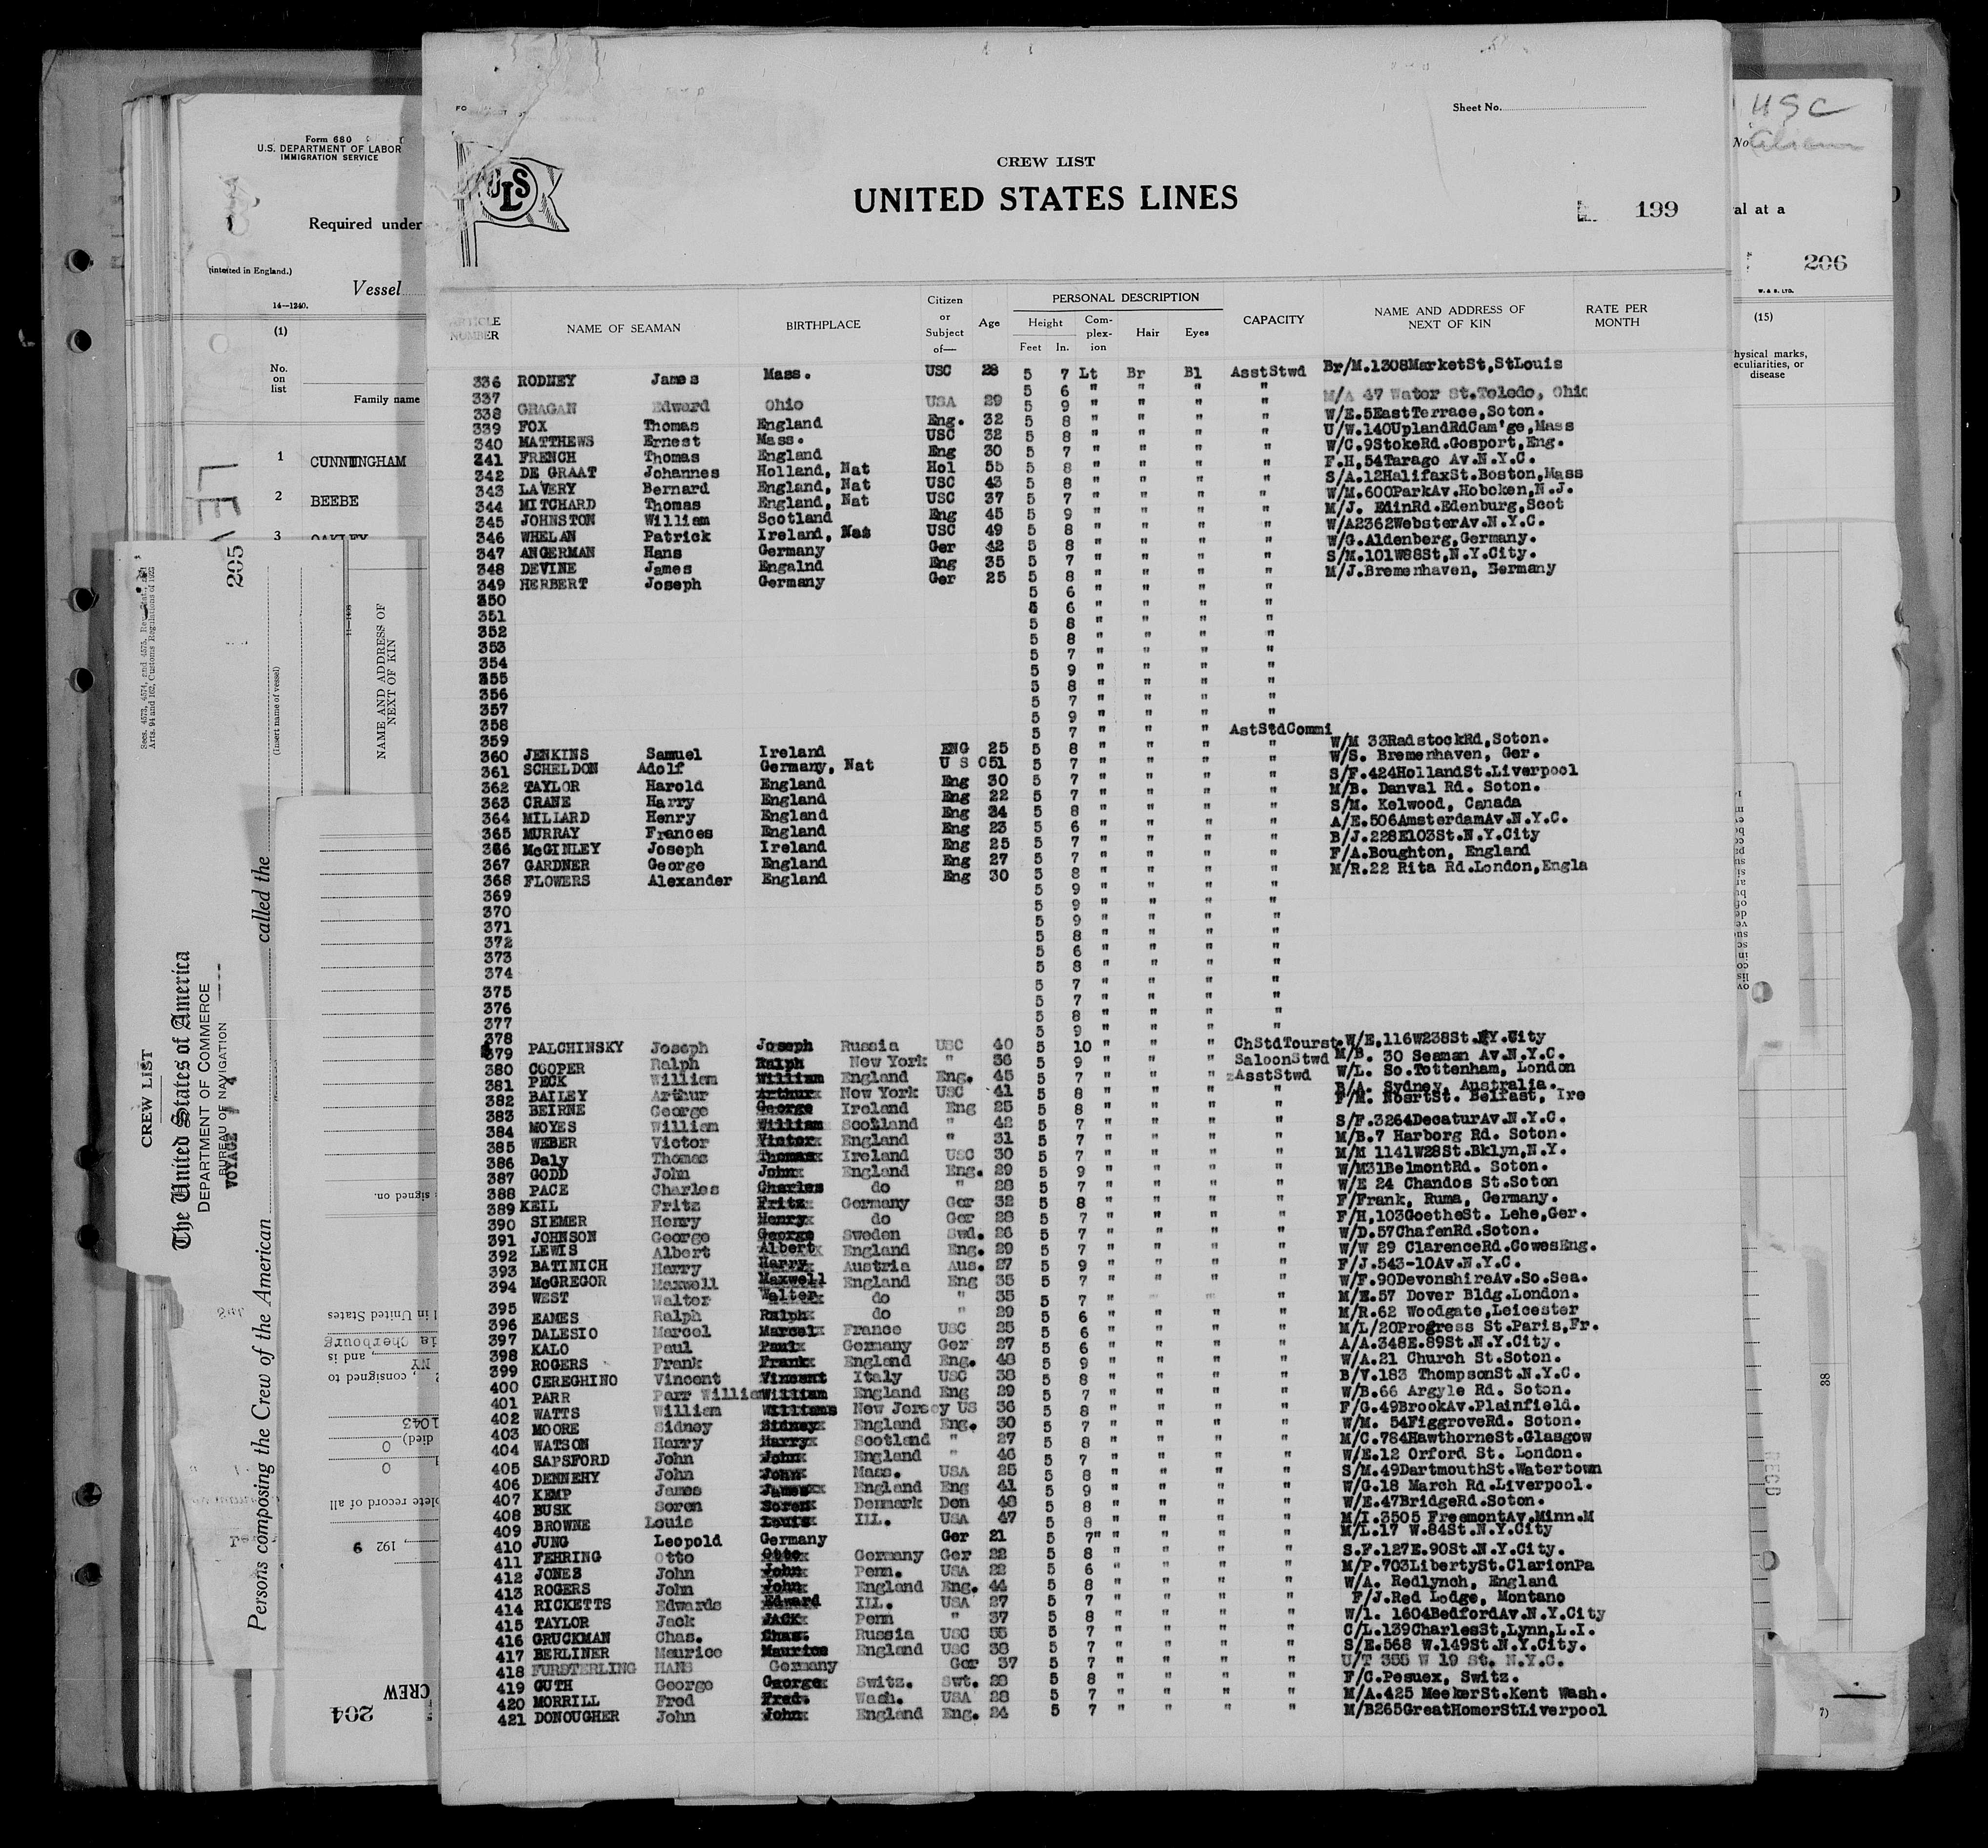 Form 680
U.S. DEPARTMENT OF LABOR
IMMIGRATION SERVICE
Required under
(intested in England.)
Vessel
14—1240.
(1)
No.
on
list
Family name
1 CUNNINGHAM
2 BEEBE
3 OAKLEY
Sheet No.
CREW LIST
UNITED STATES LINES
199
ULS
ARTICLE NUMBER NAME OF SEAMAN BIRTHPLACE Citizen or Subject of— Age PERSONAL DESCRIPTION Height Feet In. Complexion Hair Eyes CAPACITY NAME AND ADDRESS OF NEXT OF KIN RATE PER MONTH
336 RODNEY James Mass. USC 28 5 7 Lt Br Bl AsstStwd Br/M.1308MarketSt,StLouis
337 5 6 " " " "
338 GRAGAN Edward Ohio USA 29 5 9 " " " " M/A 47 Water St.Toledo, Ohio
339 FOX Thomas England Eng. 32 5 8 " " " " W/E.5EastTerrace,Soton.
340 MATTHEWS Ernest Mass. USC 32 5 8 " " " " U/W.140UplandRdCam'ge,Mass
341 FRENCH Thomas England Eng 30 5 7 " " " " W/C.9StokeRd.Gosport,Eng.
342 DE GRAAT Johannes Holland, Nat Hol 55 5 8 " " " " F.H,54Tarago Av.N.Y.C.
343 LAVERY Bernard England, Nat USC 43 5 8 " " " " S/A.12HalifaxSt.Boston,Mass
344 MITCHARD Thomas England, Nat USC 37 5 7 " " " " W/M.600ParkAv.Hoboken,N.J.
345 JOHNSTON William Scotland Eng 45 5 9 " " " " M/J. EdinRd.Edenburg,Scot
346 WHELAN Patrick Ireland, Nat USC 49 5 8 " " " " W/A2362WebsterAv.N.Y.C.
347 ANGERMAN Hans Germany Ger 42 5 8 " " " " W/G.Aldenberg,Germany.
348 DEVINE James Engalnd Eng 35 5 7 " " " " S/M.101W88St,N.Y.City.
349 HERBERT Joseph Germany Ger 25 5 8 " " " " M/J.Bremenhaven, Germany
350 5 6 " " " "
351 6 6 " " " "
352 5 8 " " " "
353 5 8 " " " "
354 5 7 " " " "
355 5 9 " " " "
356 5 8 " " " "
357 5 7 " " " "
358 5 9 " " " "
359 5 7 " " " AstStdCommi
360 JENKINS Samuel Ireland ENG 25 5 8 " " " " W/M 33RadstockRd,Soton.
361 SCHELDON Adolf Germany, Nat U S C51 5 7 " " " " W/S. Bremenhaven, Ger.
362 TAYLOR Harold England Eng 30 5 7 " " " " S/F.424HollandSt.Liverpool
363 CRANE Harry England Eng 22 5 7 " " " " M/B. Danval Rd. Soton.
364 MILLARD Henry England Eng 24 5 8 " " " " S/M. Kelwood, Canada
365 MURRAY Frances England Eng 23 5 6 " " " " A/E.506AmsterdamAv.N.Y.C.
366 McGINLEY Joseph Ireland Eng 25 5 7 " " " " B/J.228E103St.N.Y.City
367 GARDNER George England Eng 27 5 7 " " " " F/A.Boughton, England
368 FLOWERS Alexander England Eng 30 5 8 " " " " M/R.22 Rita Rd.London,Engla
369 5 9 " " " "
370 5 9 " " " "
371 5 9 " " " "
372 5 8 " " " "
373 5 6 " " " "
374 5 8 " " " "
375 5 7 " " " "
376 5 7 " " " "
377 5 8 " " " "
378 5 9 " " " "
379 PALCHINSKY Joseph Joseph Russia USC 40 5 10 " " " ChStdTourst W/E.116W238St.NY.City
380 COOPER Ralph Ralph New York " 36 5 9 " " " SaloonStwd M/B. 30 Seaman Av.N.Y.C.
381 PECK William William England Eng. 45 5 7 " " " AsstStwd W/L. So.Tottenham, London
382 BAILEY Arthur Arthur New York USC 41 5 8 " " " " B/A. Sydney, Australia.
383 BEIRNE George George Ireland Eng 25 5 8 " " " " F/M. NosrtSt. Belfast, Ire
384 MOYES William William Scotland " 42 5 7 " " " " S/F.3264DecaturAv.N.Y.C.
385 WEBER Victor Victor England " 31 5 7 " " " " M/B.7 Harborg Rd. Soton.
386 Daly Thomas Thomas Ireland USC 30 5 7 " " " " M/M 1141W28St.Bklyn,N.Y.
387 GODD John John England Eng. 29 5 9 " " " " W/M31BelmontRd. Soton.
388 PACE Charles Charles do " 28 5 7 " " " " W/E 24 Chandos St.Soton
389 KEIL Fritz Fritz Germany Ger 32 5 8 " " " " F/Frank, Ruma, Germany.
390 SIEMER Henry Henry do Ger 28 5 7 " " " " F/H,103GoetheSt. Lehe,Ger.
391 JOHNSON George George Sweden Swd. 26 5 7 " " " " W/D.57ChafenRd.Soton.
392 LEWIS Albert Albert England Eng. 29 5 7 " " " " W/W 29 ClarenceRd.CowesEng.
393 BATINICH Harry Harry Austria Aus. 27 5 9 " " " " F/J.543-10Av.N.Y.C.
394 McGREGOR Maxwell Maxwell England Eng 35 5 7 " " " " W/F.90DevonshireAv.So.Sea.
395 WEST Walter Walter do " 35 5 7 " " " " M/E.57 Dover Bldg.London.
396 EAMES Ralph Ralph do " 29 5 6 " " " " M/R.62 Woodgate,Leicester
397 DALESIO Marcel Marcel France USC 25 5 6 " " " " M/L/20Progress St.Paris,Fr.
398 KALO Paul Paul Germany Ger 27 5 6 " " " " A/A.348E.89St.N.Y.City.
399 ROGERS Frank Frank England Eng. 48 5 9 " " " " W/A.21 Church St.Soton.
400 CEREGHINO Vincent Vincent Italy USC 38 5 8 " " " " B/V.183 ThompsonSt.N.Y.C.
401 PARR Parr William England Eng 29 5 7 " " " " W/B.66 Argyle Rd. Soton.
402 WATTS William Williams New Jersey US 36 5 8 " " " " F/G.49BrookAv.Plainfield.
403 MOORE Sidney Sidney England Eng. 30 5 7 " " " " W/M. 54FiggroveRd. Soton.
404 WATSON Harry Harry Scotland " 27 5 8 " " " " M/C.784HawthorneSt.Glasgow
405 SAPSFORD John John England " 46 5 7 " " " " W/E.12 Orford St. London.
406 DENNEHY John John Mass. USA 25 5 8 " " " " S/M.49DartmouthSt.Watertown
407 KEMP James James England Eng 41 5 9 " " " " W/G.18 March Rd.Liverpool.
408 BUSK Soren Soren Denmark Den 48 5 8 " " " " W/E.47BridgeRd.Soton.
409 BROWNE Louis Louis ILL. USA 47 5 8 " " " " M/I.3505 FreemontAv.Minn.M
410 JUNG Leopold Germany Ger 21 5 7" " " " " M/L.17 W.84St.N.Y.City
411 FEHRING Otto Otto Germany Ger 22 5 8 " " " " S.F.127E.90St.N.Y.City.
412 JONES John John Penn. USA 22 5 6 " " " " M/P.703LibertySt.ClarionPa
413 ROGERS John John England Eng. 44 5 8 " " " " W/A. Redlynch, England
414 RICKETTS Edwards Edward ILL. USA 27 5 7 " " " " F/J.Red Lodge, Montano
415 TAYLOR Jack JACK Penn " 37 5 8 " " " " W/l. 1604BedfordAv.N.Y.City
416 GRUCKMAN Chas. Chas. Russia USC 55 5 7 " " " " C/L.139CharlesSt,Lynn,L.I.
417 BERLINER Maurice Maurice England USC 38 5 7 " " " " S/E.568 W.149St.N.Y.City.
418 FURSTERLING HANS Germany Ger 37 5 7 " " " " U/T 355 W 19 St. N.Y.C.
419 GUTH George George Switz. Swt. 28 5 8 " " " " F/C.Pesuex, Switz.
420 MORRILL Fred Fred. Wash. USA 28 5 7 " " " " M/A.425 MeekerSt.Kent Wash.
421 DONOUGHER John John England Eng. 24 5 7 " " " " M/B265GreatHomerStLiverpool
USC
No Aliens
val at a
206
W. & S. LTD.
(15)
hysical marks,
eculiarities, or
disease
38
RECD
205
NAME AND ADDRESS OF
NEXT OF KIN
11—1408
(Insert name of vessel)
Secs. 4573, 4574, and 4575, Rev. Stat., and
Arts. 94 and 162, Customs Regulations of 1923
CREW LIST
The United States of America
DEPARTMENT OF COMMERCE
BUREAU OF NAVIGATION
VOYAGE
Persons composing the Crew of the American called the
signed on.
l in United States
ia Cherbourg
, and is
NY
consigned to
1043
died) 0
0
plete record of all
, 192 9
CREW
204
7)